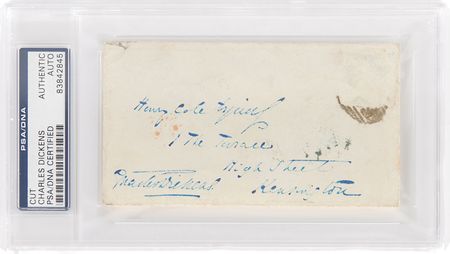 PSA/DNA
CUT
CHARLES DICKENS
PSA/DNA CERTIFIED
AUTHENTIC
AUTO
83842845
Henry Cole Esquire
The Terrace
High Street
Kensington
Charles Dickens